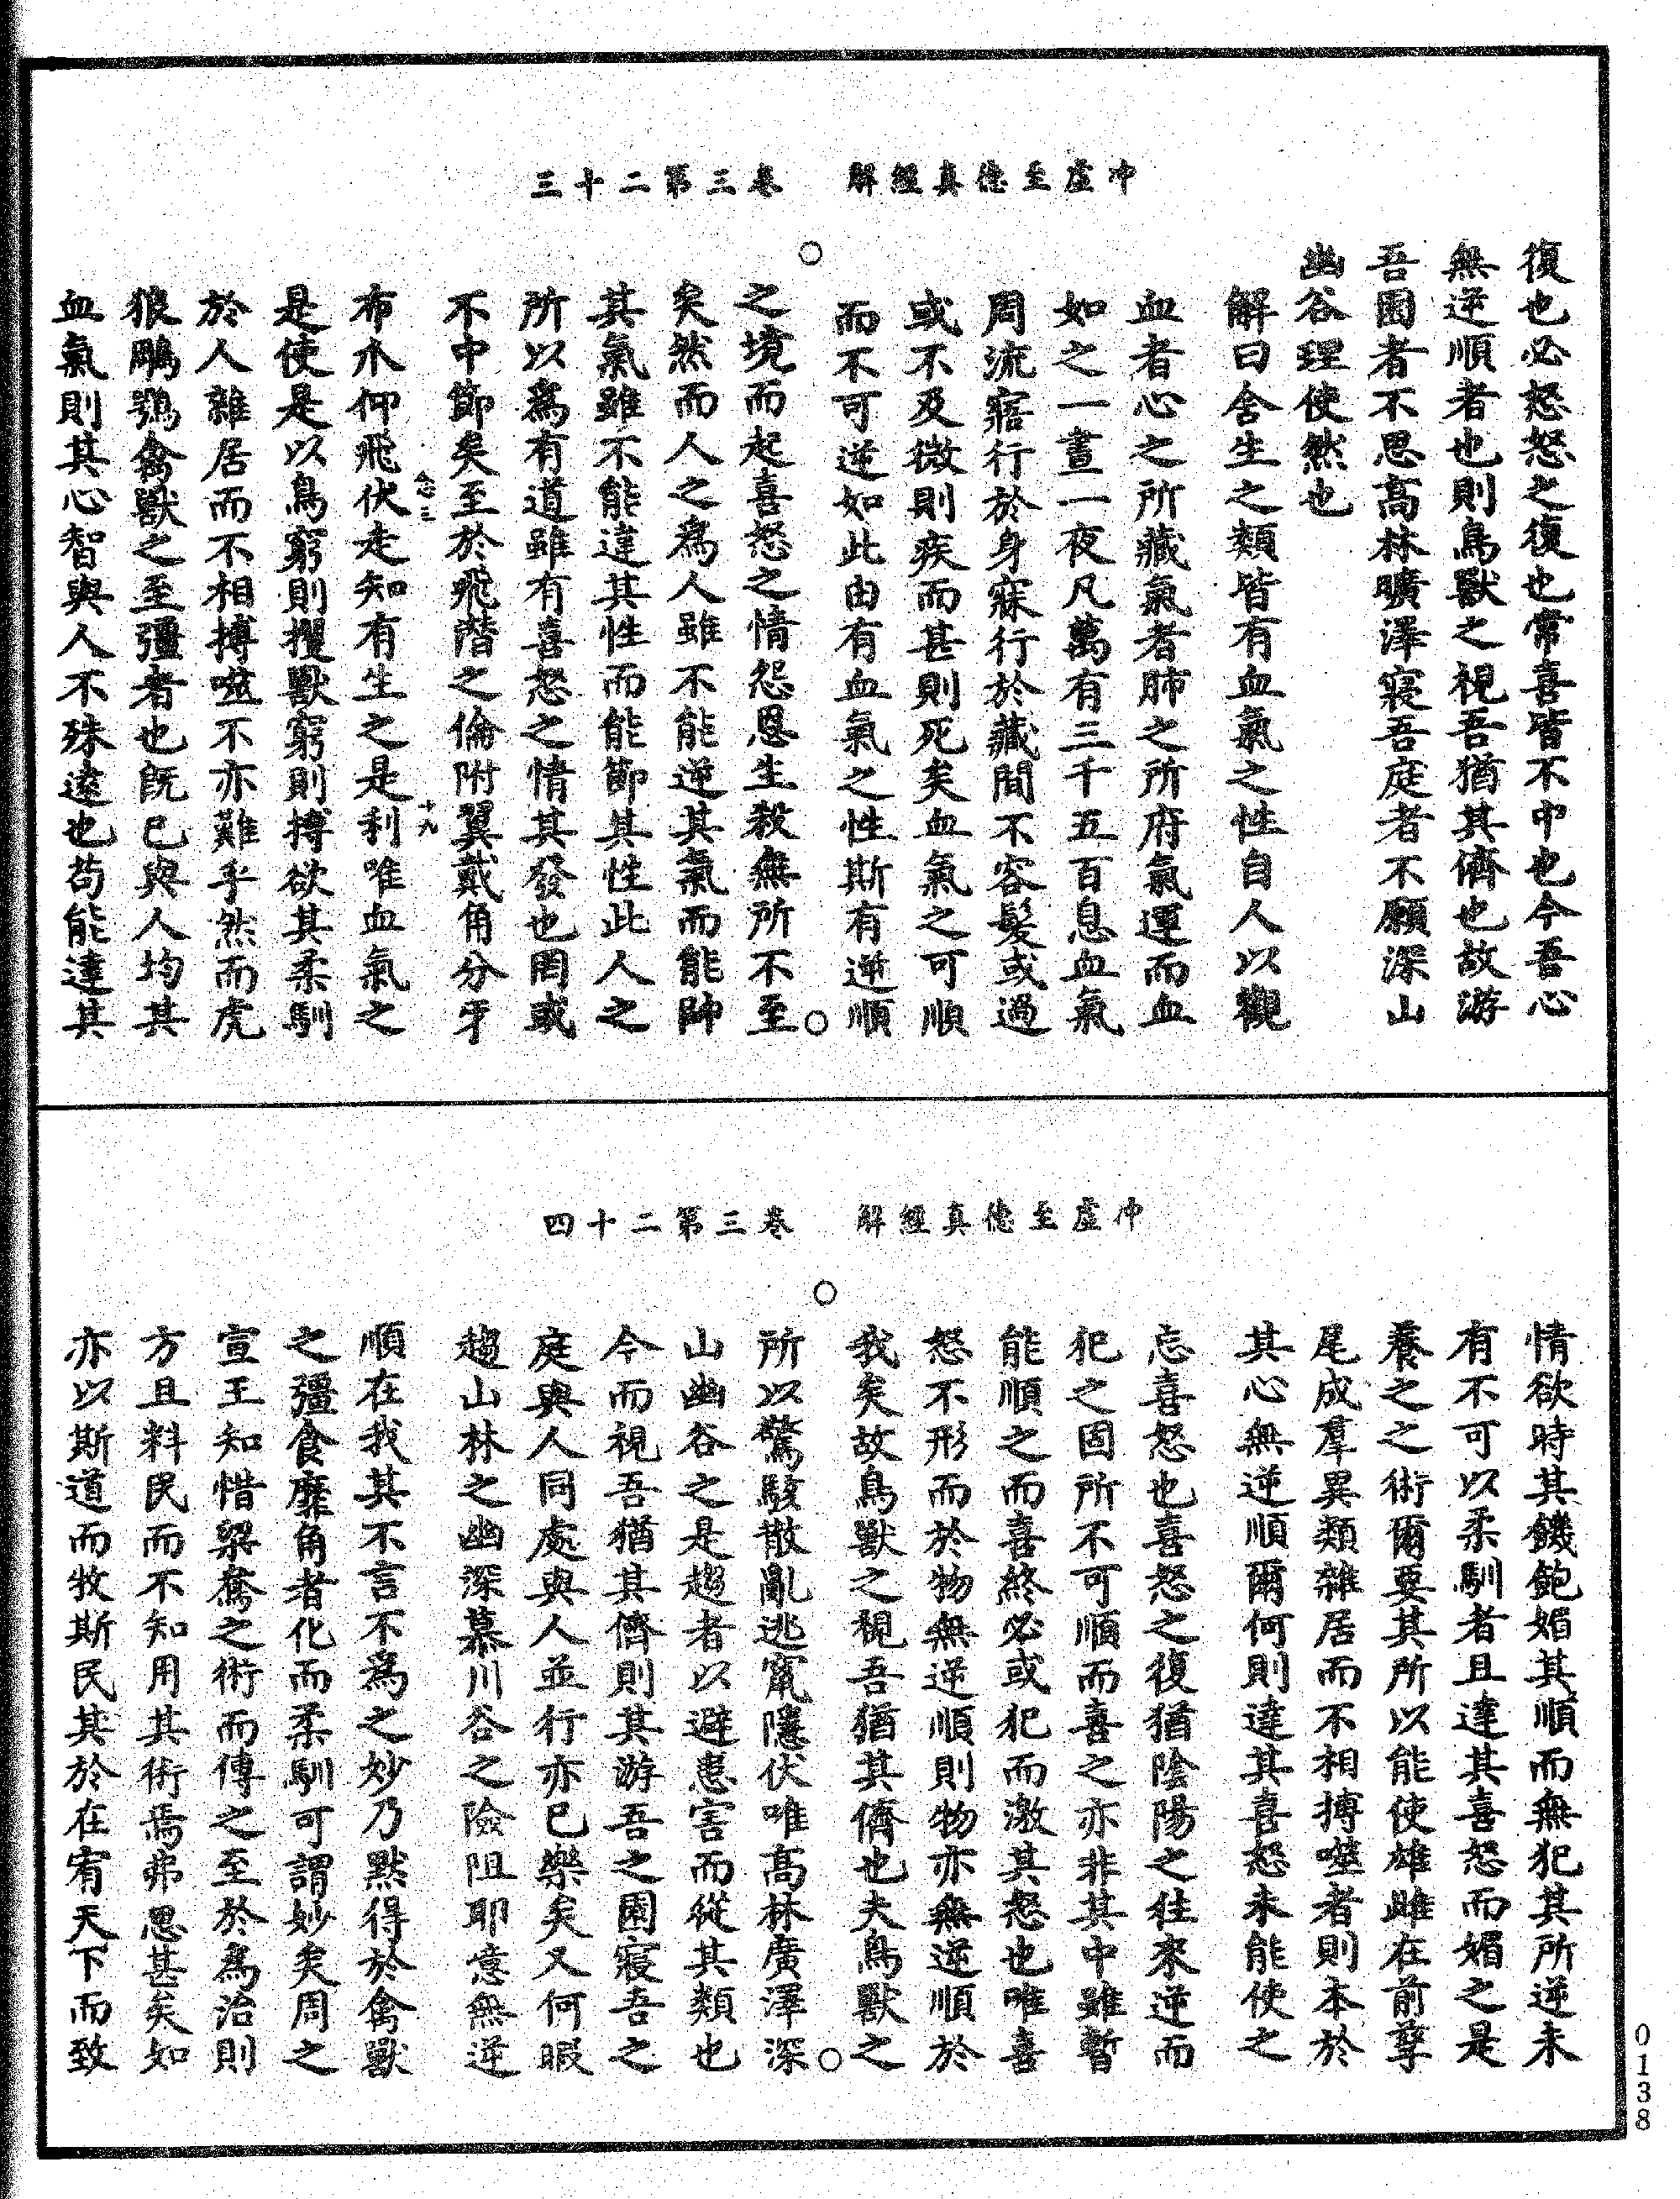 冲虛至德真經解　卷三第二十三
復也必怒怒之復也常喜皆不中也今吾心
無逆順者也則鳥獸之視吾猶其儕也故游
吾園者不思高林曠澤寢吾庭者不願深山
幽谷理使然也
解曰含生之類皆有血氣之性自人以觀
血者心之所藏氣者肺之所府氣運而血
如之一晝一夜凡萬有三千五百息血氣
周流寤行於身寐行於藏間不容髮或過
或不及微則疾而甚則死矣血氣之可順
而不可逆如此由有血氣之性斯有逆順
之境而起喜怒之情怨恩生殺無所不至
矣然而人之為人雖不能逆其氣而能帥
其氣雖不能達其性而能節其性此人之
所以為有道雖有喜怒之情其發也罔或
不中節矣至於飛潛之倫附翼戴角分牙
布爪仰飛伏走知有生之是利唯血氣之
十九
是使是以鳥窮則攫獸窮則搏欲其柔馴
於人雜居而不相搏噬不亦難乎然而虎
狼鵰鶚禽獸之至彊者也既已與人均其
血氣則其心智與人不殊遠也苟能達其
冲虛至德真經解　卷三第二十四
情欲時其饑飽媚其順而無犯其所逆未
有不可以柔馴者且達其喜怒而媚之是
養之之術爾要其所以能使雄雌在前孳
尾成羣異類雜居而不相搏噬者則本於
其心無逆順爾何則達其喜怒未能使之
忘喜怒也喜怒之復猶陰陽之往來逆而
犯之固所不可順而喜之亦非其中雖暫
能順之而喜終必或犯而激其怒也唯喜
怒不形而於物無逆順則物亦無逆順於
我矣故鳥獸之視吾猶其儕也夫鳥獸之
所以驚駭散亂逃竄隱伏唯高林廣澤深
山幽谷之是趨者以避患害而從其類也
今而視吾猶其儕則其游吾之園寢吾之
庭與人同處與人並行亦已樂矣又何暇
趨山林之幽深慕川谷之險阻耶意無逆
順在我其不言不為之妙乃默得於禽獸
之彊食靡角者化而柔馴可謂妙矣周之
宣王知惜梁鴦之術而傳之至於為治則
方且料民而不知用其術焉弗思甚矣知
亦以斯道而牧斯民其於在宥天下而致
0138